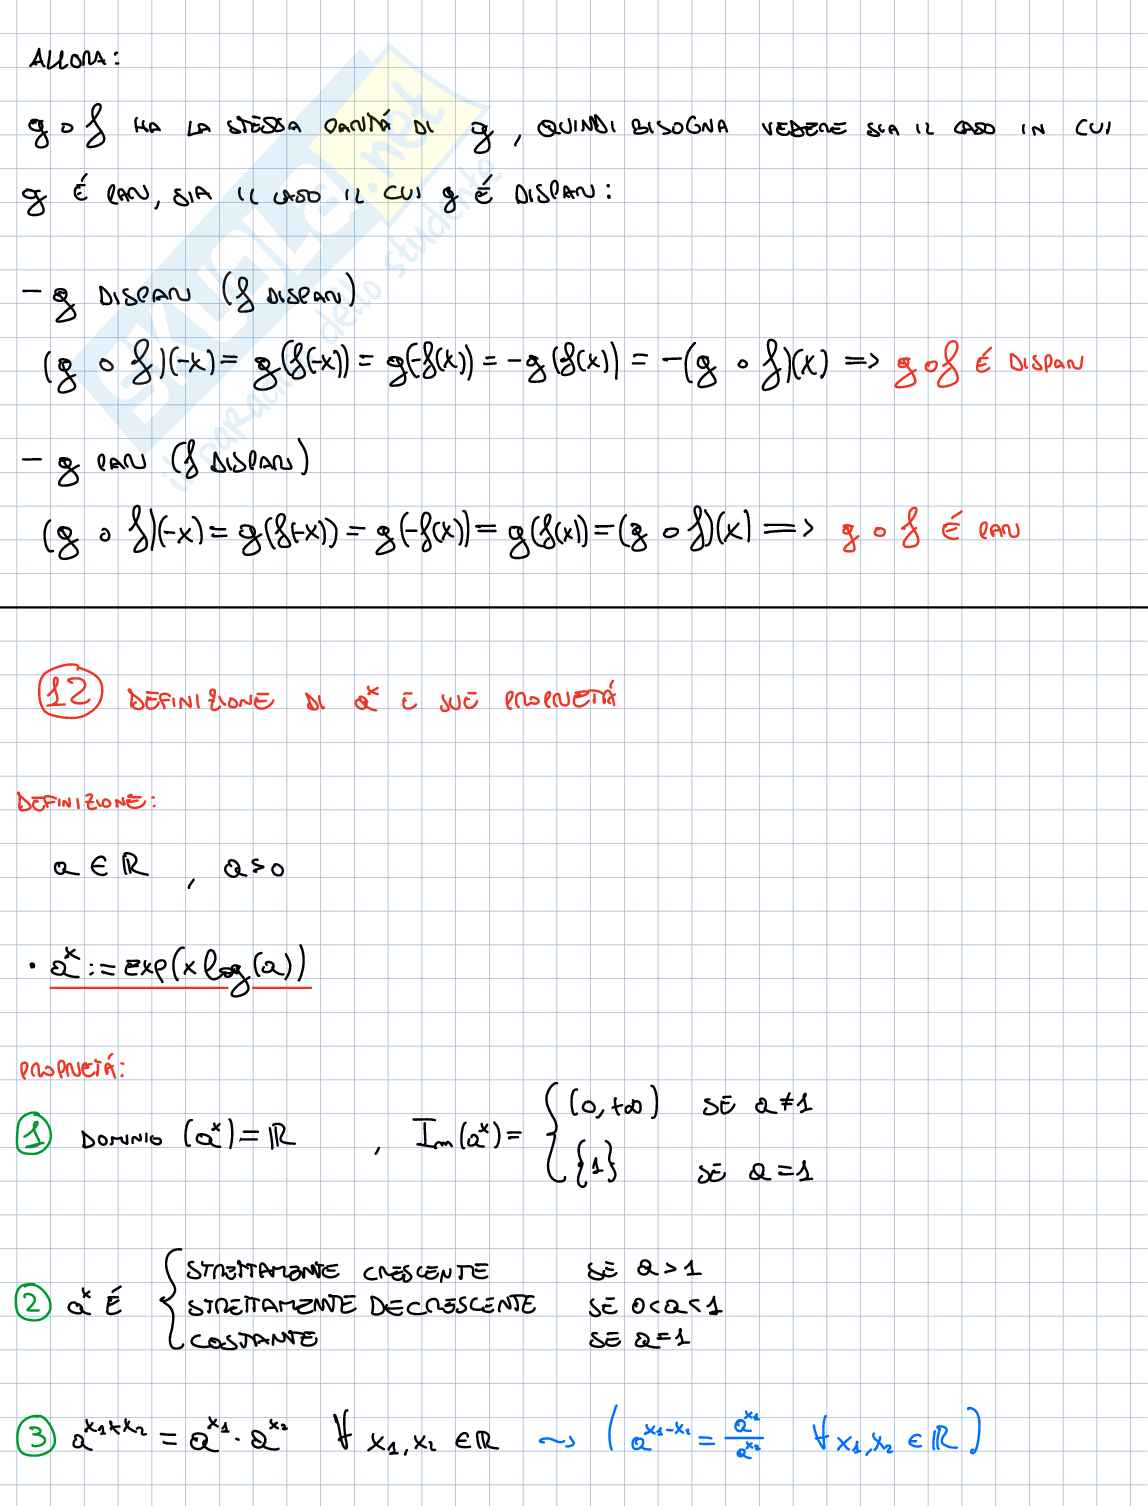 ALLORA:
g ∘ f HA LA STESSA PARITÁ DI g, QUINDI BISOGNA VEDERE SIA IL CASO IN CUI
g É PARI, SIA IL CASO IL CUI g É DISPARI:
- g DISPARI (f DISPARI)
(g ∘ f)(-x) = g(f(-x)) = g(-f(x)) = -g(f(x)) = -(g ∘ f)(x) => g∘f É DISPARI
- g PARI (f DISPARI)
(g ∘ f)(-x) = g(f(-x)) = g(-f(x)) = g(f(x)) = (g ∘ f)(x) => g ∘ f É PARI
12 DEFINIZIONE DI aˣ E SUE PROPRIETÁ
DEFINIZIONE:
a ∈ ℝ , a > 0
· aˣ := EXP(x log(a))
PROPRIETÁ:
1 DOMINIO (aˣ) = ℝ , Im(aˣ) = { (0, +∞) SE a ≠ 1
{1} SE a = 1
2 aˣ É { STRETTAMENTE CRESCENTE SE a > 1
STRETTAMENTE DECRESCENTE SE 0 < a < 1
COSTANTE SE a = 1
3 a^(x₁+x₂) = a^x₁ · a^x₂ ∀ x₁, x₂ ∈ ℝ ~> ( a^(x₁-x₂) = a^x₁ / a^x₂ ∀ x₁, x₂ ∈ ℝ )
SKUOLA.net
il paradiso dello studente